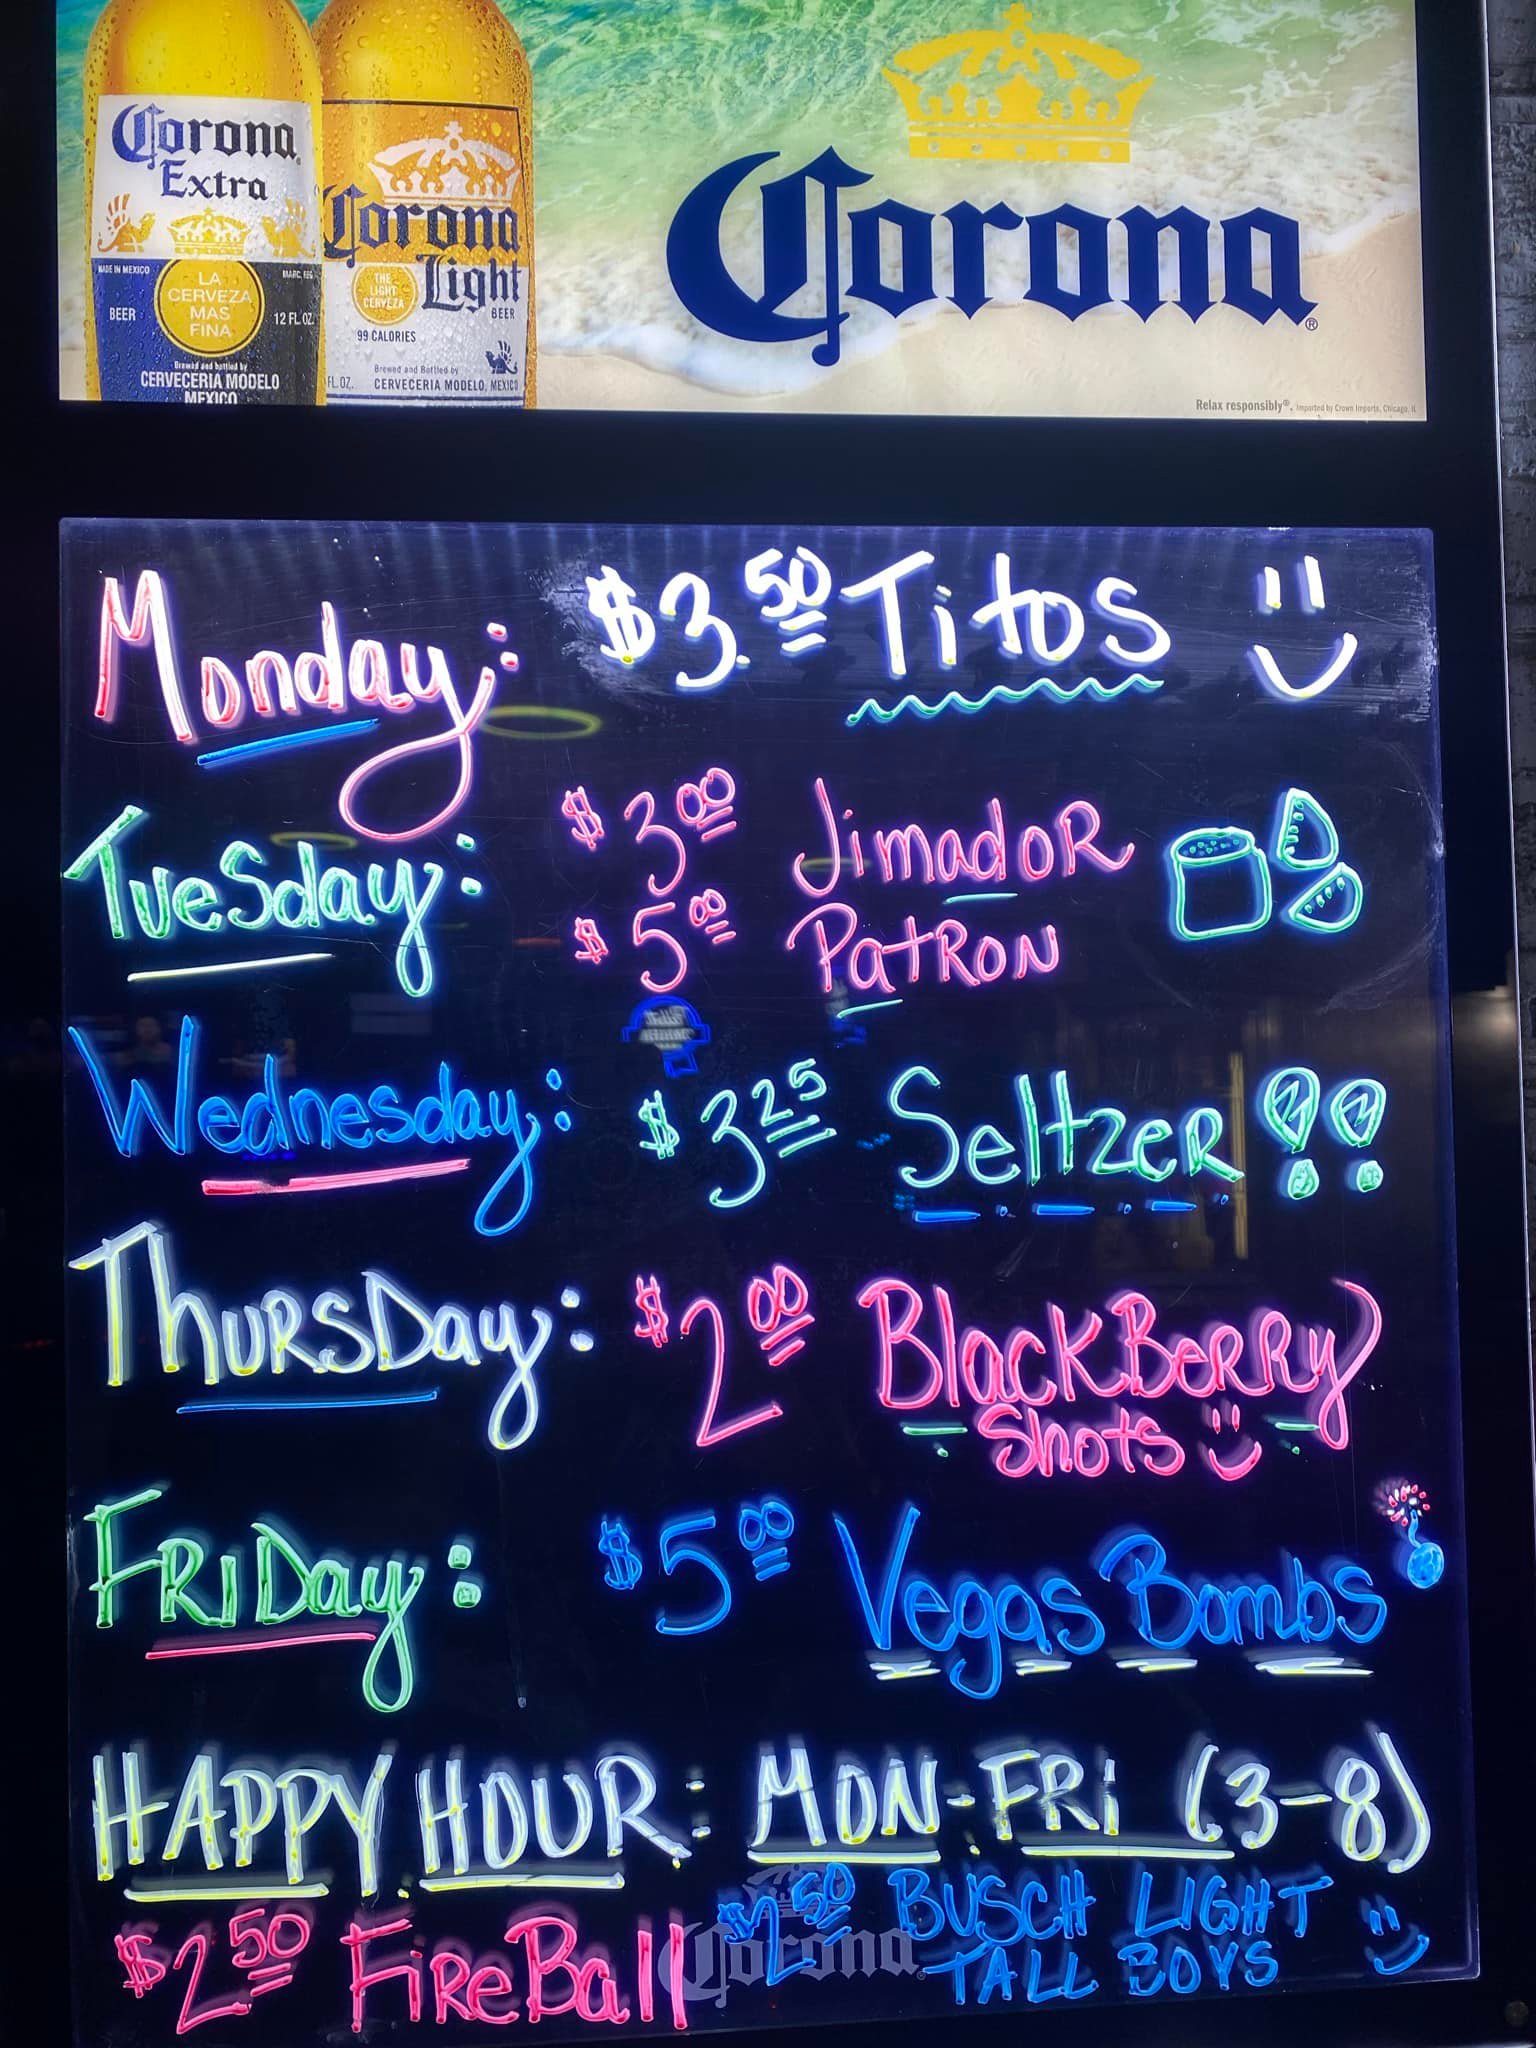 Corona
Extra
MADE IN MEXICO
MARC. REG
LA
CERVEZA
MAS
FINA
BEER
12 FL.OZ.
Brewed and bottled by
CERVECERIA MODELO
MEXICO
Corona
Light
BEER
THE
LIGHT
CERVEZA
99 CALORIES
Brewed and Bottled by
FL.OZ. CERVECERIA MODELO, MEXICO
Corona®
Relax responsibly®. Imported by Crown Imports, Chicago, IL
Monday: $3.50 Titos
Tuesday: $3.00 Jimador
$5.00 Patron
Wednesday: $3.25 Seltzer!!
Thursday: $2.00 BlackBerry
Shots
Friday: $5.00 Vegas Bombs
HAPPY HOUR: MON-FRi (3-8)
$2.50 FireBall $2.50 BUSCH LIGHT
TALL BOYS
Corona